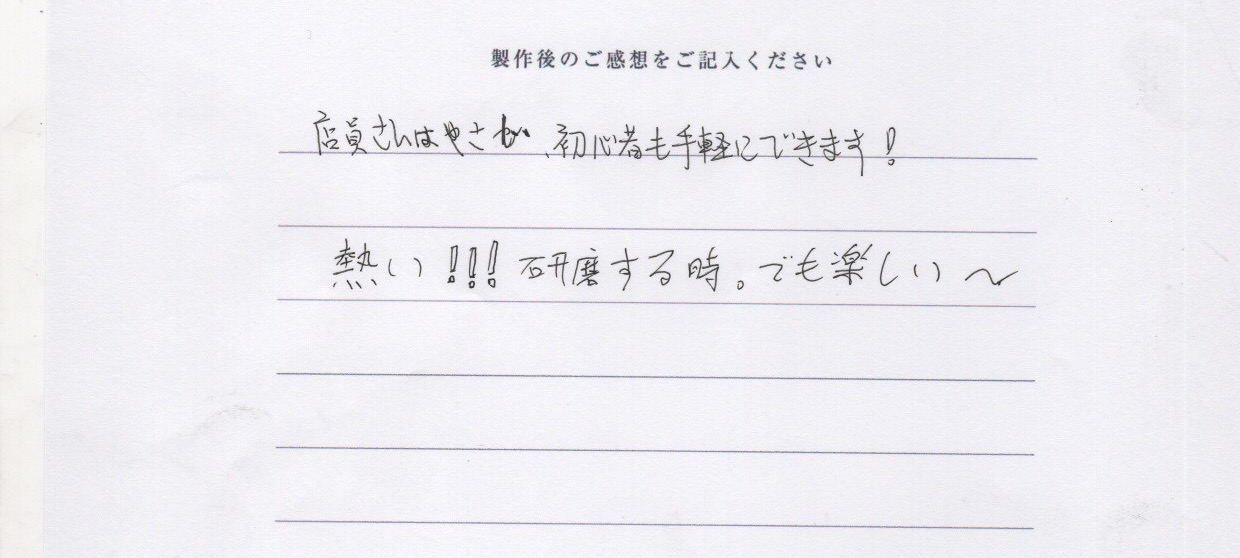 製作後のご感想をご記入ください
店員さんはやさしい、初心者も手軽にできます!
熱い!!!研磨する時。でも楽しい〜